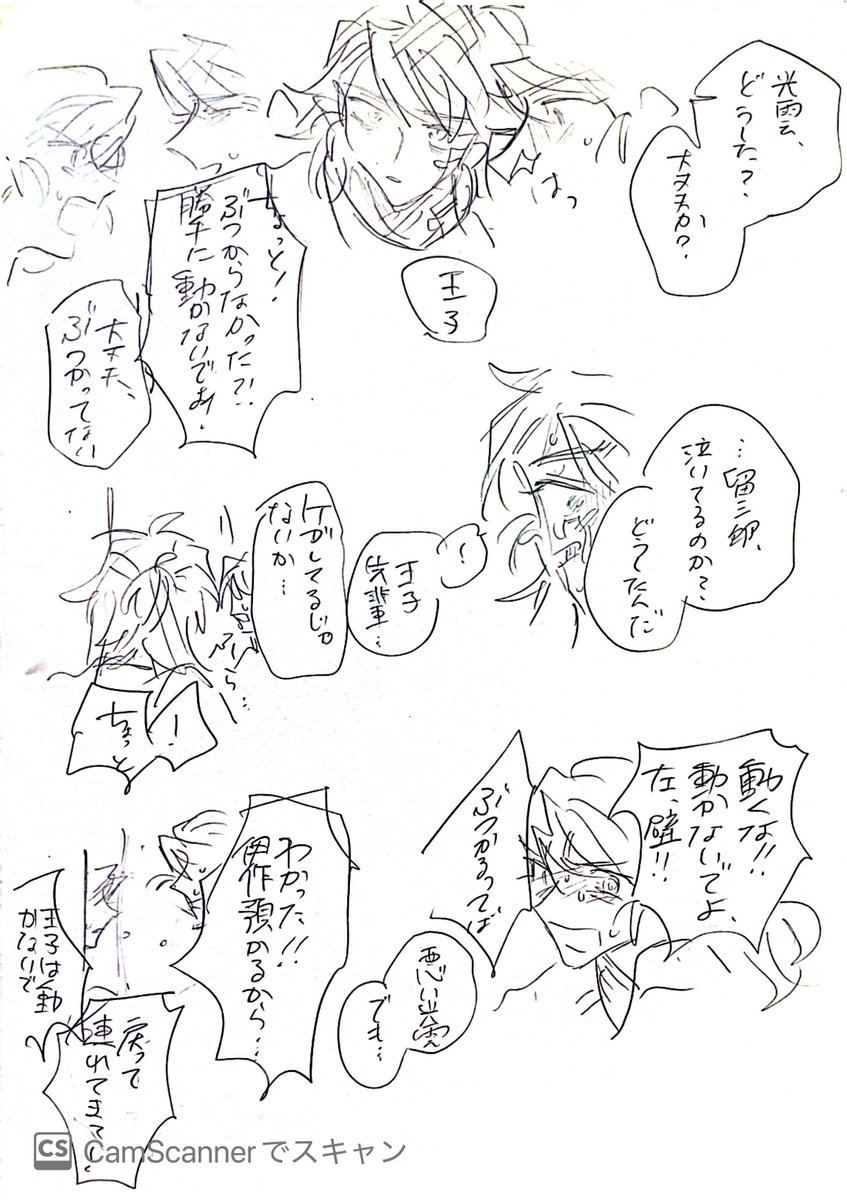 光雲、
どうした?
大丈夫か?
はっ
王子
ちょっと!
ぶつからなかった?!
勝手に動かないでよ!
大丈夫、
ぶつかってない
…留三郎、
泣いてるのか?
どうしたんだ
!
王子
先輩…
ケガしてるじゃ
ないか…
ふら…
!
ちょっと
動くな!!
動かないでよ、
左、壁!!
ぶつかるってば
悪い光雲
でも…
わかった!!
用作預かるから…
戻って
連れてきて!
王子は動
かないで
CS CamScannerでスキャン